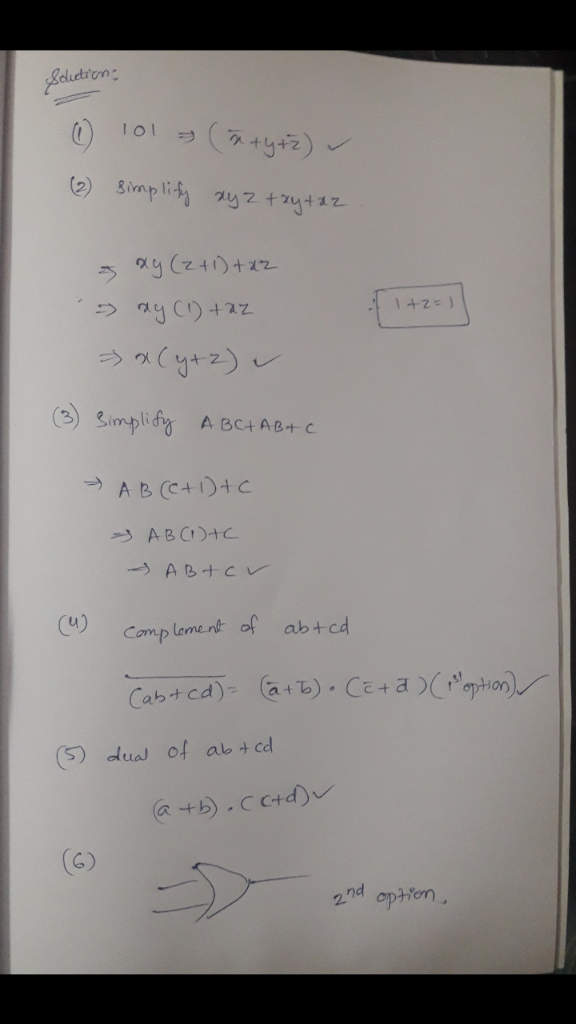 Solution:
(1) 101 ⇒ (x̄+y+z̄) ✓
(2) Simplify xyz+xy+xz
⇒ xy(z+1)+xz
⇒ xy(1)+xz ∴ 1+z=1
⇒ x(y+z) ✓
(3) Simplify ABC+AB+C
⇒ AB(C+1)+C
⇒ AB(1)+C
→ AB+C ✓
(4) Complement of ab+cd
\overline{(ab+cd)} = (ā+b̄).(c̄+d̄) (1st option) ✓
(5) dual of ab+cd
(a+b).(c+d) ✓
(6)
2nd option.